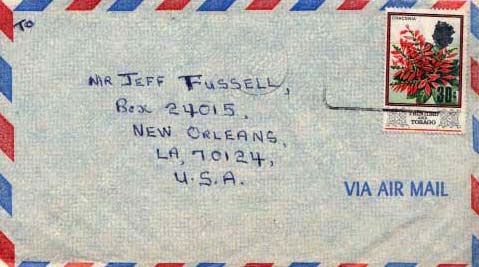 TO
CHACONIA
MR JEFF FUSSELL,
30¢
BOX 24015,
TRINIDAD
AND
TOBAGO
NEW ORLEANS,
LA, 70124,
U.S.A.
VIA AIR MAIL